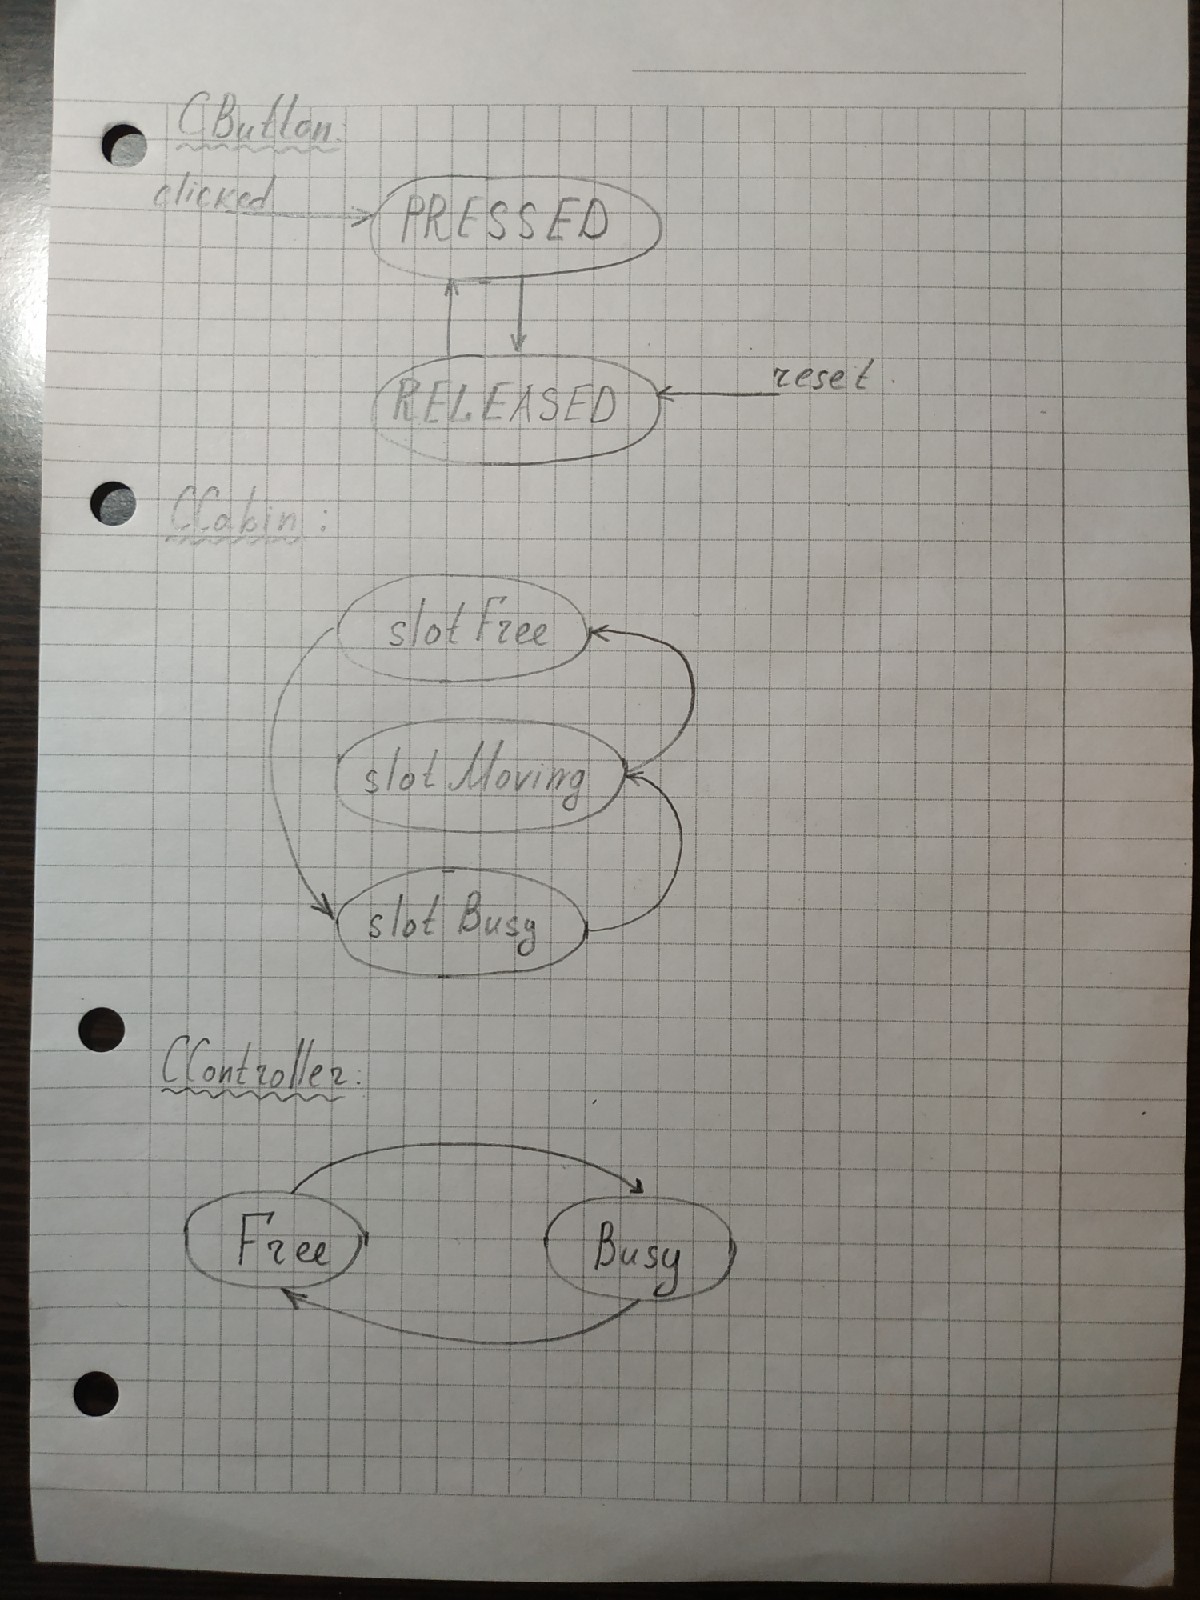 CButton:
clicked
PRESSED
RELEASED
reset
CCabin:
slotFree
slotMoving
slotBusy
CController:
Free
Busy